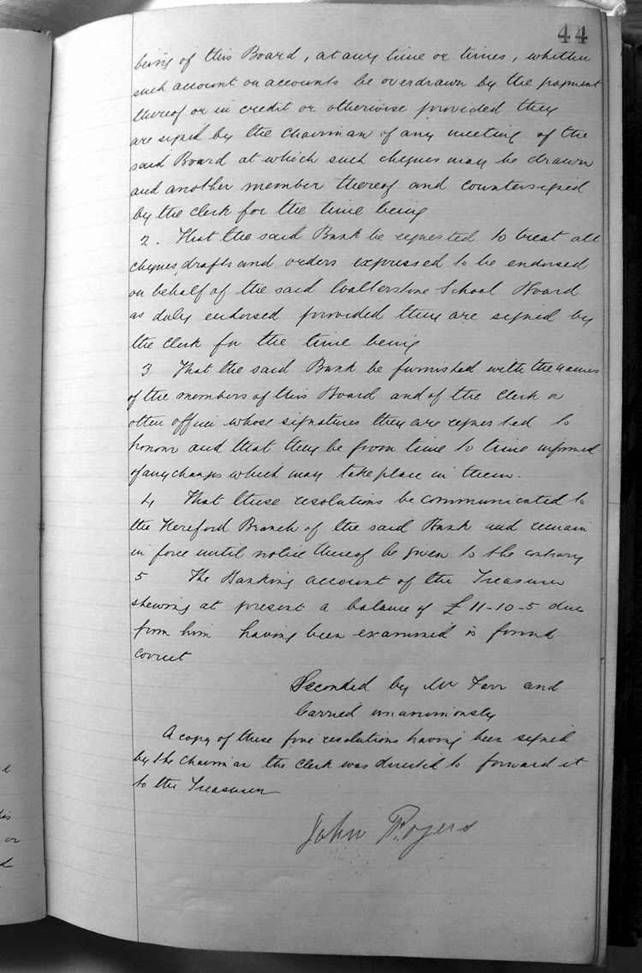 44
being of this Board, at any time or times, whether
such account or accounts be overdrawn by the payment
thereof or in credit or otherwise provided they
are signed by the Chairman of any meeting of the
said Board at which such cheques may be drawn
and another member thereof and countersigned
by the Clerk for the time being
2. That the said Bank be requested to treat all
cheques, drafts and orders expressed to be endorsed
on behalf of the said Walterstone School Board
as duly endorsed provided they are signed by
the Clerk for the time being
3 That the said Bank be furnished with the names
of the members of this Board and of the Clerk or
other officer whose signatures they are requested to
honour and that they be from time to time informed
of any changes which may take place in them.
4 That these resolutions be communicated to
the Hereford Branch of the said Bank and remain
in force until notice thereof be given to the contrary
5 The Banking account of the Treasurer
shewing at present a balance of £11-10-5 due
from him having been examined is found
correct
Seconded by Mr Farr and
Carried unanimously
A copy of these five resolutions having been signed
by the Chairman the Clerk was directed to forward it
to the Treasurer
John Rogers